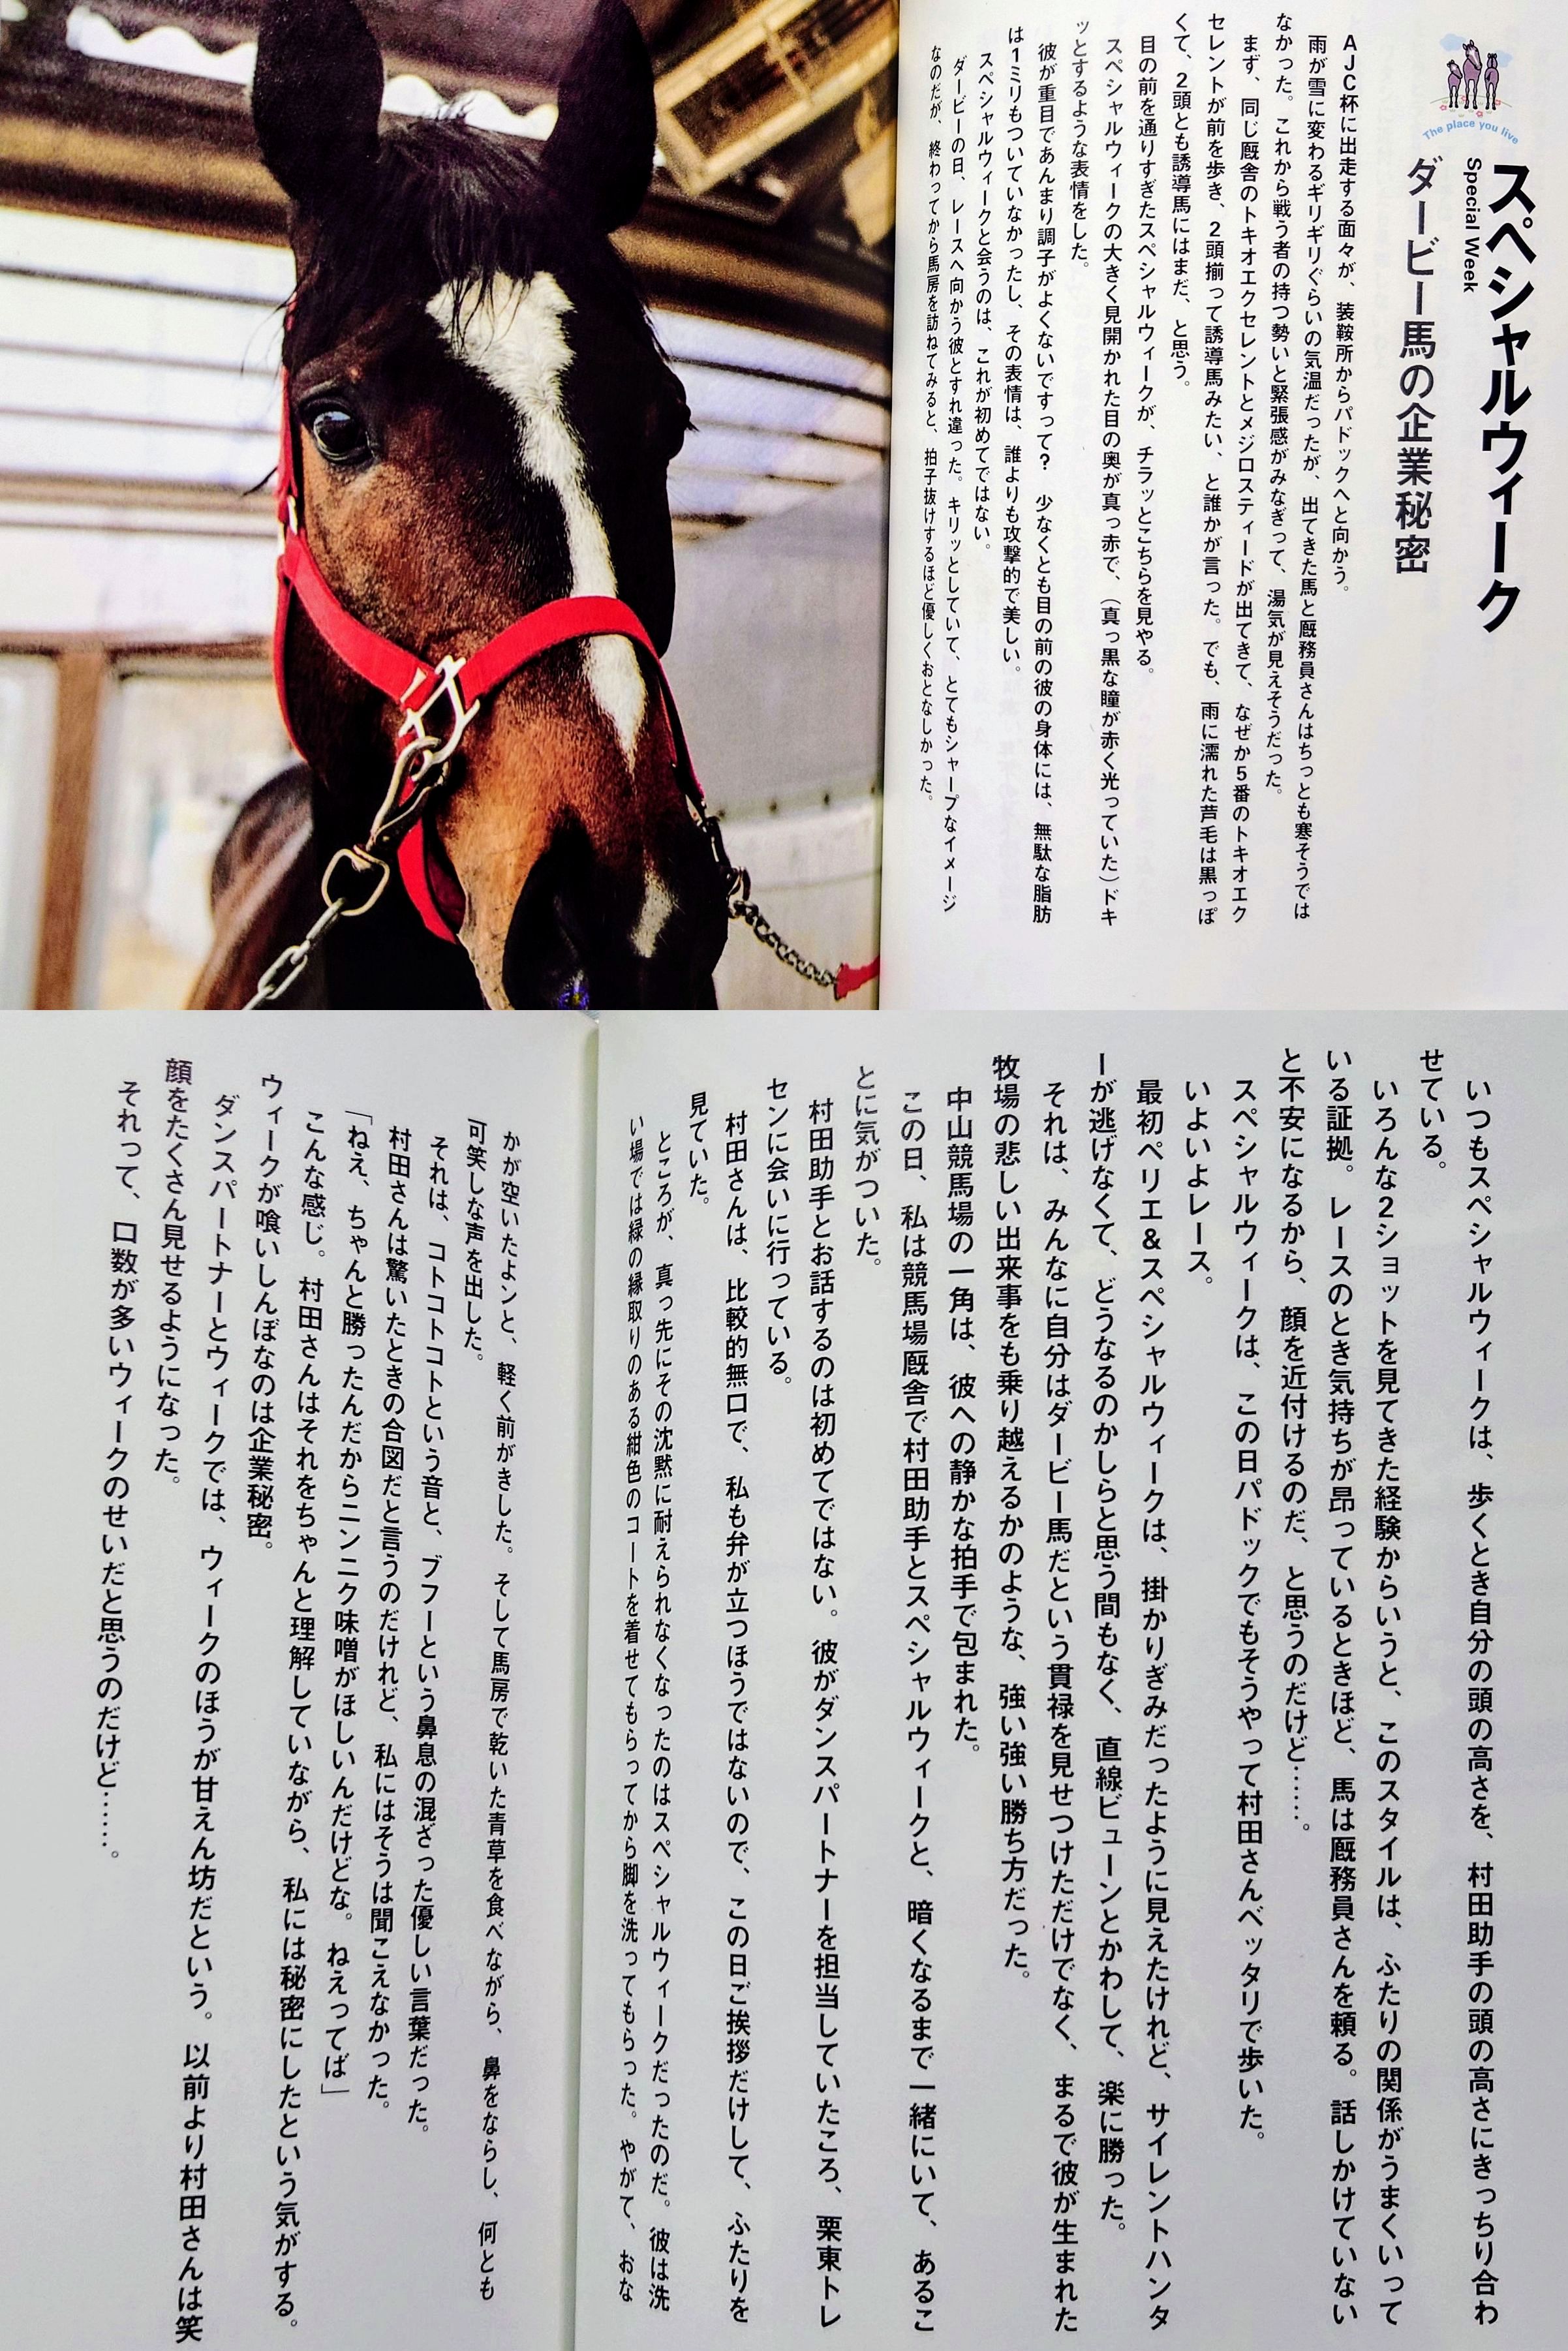 The place you live
スペシャルウィーク
Special Week
ダービー馬の企業秘密
AJC杯に出走する面々が、装鞍所からパドックへと向かう。
雨が雪に変わるギリギリぐらいの気温だったが、出てきた馬と厩務員さんはちっとも寒そうでは
なかった。これから戦う者の持つ勢いと緊張感がみなぎって、湯気が見えそうだった。
まず、同じ厩舎のトキオエクセレントとメジロスティードが出てきて、なぜか5番のトキオエク
セレントが前を歩き、2頭揃って誘導馬みたい、と誰かが言った。でも、雨に濡れた芦毛は黒っぽ
くて、2頭とも誘導馬にはまだ、と思う。
目の前を通りすぎたスペシャルウィークが、チラッとこちらを見やる。
スペシャルウィークの大きく見開かれた目の奥が真っ赤で、（真っ黒な瞳が赤く光っていた）ドキ
ッとするような表情をした。
彼が重目であんまり調子がよくないですって？　少なくとも目の前の彼の身体には、無駄な脂肪
は1ミリもついていなかったし、その表情は、誰よりも攻撃的で美しい。
スペシャルウィークと会うのは、これが初めてではない。
ダービーの日、レースへ向かう彼とすれ違った。キリッとしていて、とてもシャープなイメージ
なのだが、終わってから馬房を訪ねてみると、拍子抜けするほど優しくおとなしかった。
いつもスペシャルウィークは、歩くとき自分の頭の高さを、村田助手の頭の高さにきっちり合わ
せている。
いろんな2ショットを見てきた経験からいうと、このスタイルは、ふたりの関係がうまくいって
いる証拠。レースのとき気持ちが昂っているときほど、馬は厩務員さんを頼る。話しかけていない
と不安になるから、顔を近付けるのだ、と思うのだけど……。
スペシャルウィークは、この日パドックでもそうやって村田さんベッタリで歩いた。
いよいよレース。
最初ペリエ&スペシャルウィークは、掛かりぎみだったように見えたけれど、サイレントハンタ
ーが逃げなくて、どうなるのかしらと思う間もなく、直線ビューンとかわして、楽に勝った。
それは、みんなに自分はダービー馬だという貫禄を見せつけただけでなく、まるで彼が生まれた
牧場の悲しい出来事をも乗り越えるかのような、強い強い勝ち方だった。
中山競馬場の一角は、彼への静かな拍手で包まれた。
この日、私は競馬場厩舎で村田助手とスペシャルウィークと、暗くなるまで一緒にいて、あるこ
とに気がついた。
村田助手とお話するのは初めてではない。彼がダンスパートナーを担当していたころ、栗東トレ
センに会いに行っている。
村田さんは、比較的無口で、私も弁が立つほうではないので、この日ご挨拶だけして、ふたりを
見ていた。
ところが、真っ先にその沈黙に耐えられなくなったのはスペシャルウィークだったのだ。彼は洗
い場では緑の縁取りのある紺色のコートを着せてもらってから脚を洗ってもらった。やがて、おな
かが空いたよンと、軽く前がきした。そして馬房で乾いた青草を食べながら、鼻をならし、何とも
可笑しな声を出した。
それは、コトコトコトという音と、ブフーという鼻息の混ざった優しい言葉だった。
村田さんは驚いたときの合図だと言うのだけれど、私にはそうは聞こえなかった。
「ねえ、ちゃんと勝ったんだからニンニク味噌がほしいんだけどな。ねえってば」
こんな感じ。村田さんはそれをちゃんと理解していながら、私には秘密にしたという気がする。
ウィークが喰いしんぼなのは企業秘密。
ダンスパートナーとウィークでは、ウィークのほうが甘えん坊だという。以前より村田さんは笑
顔をたくさん見せるようになった。
それって、口数が多いウィークのせいだと思うのだけど……。